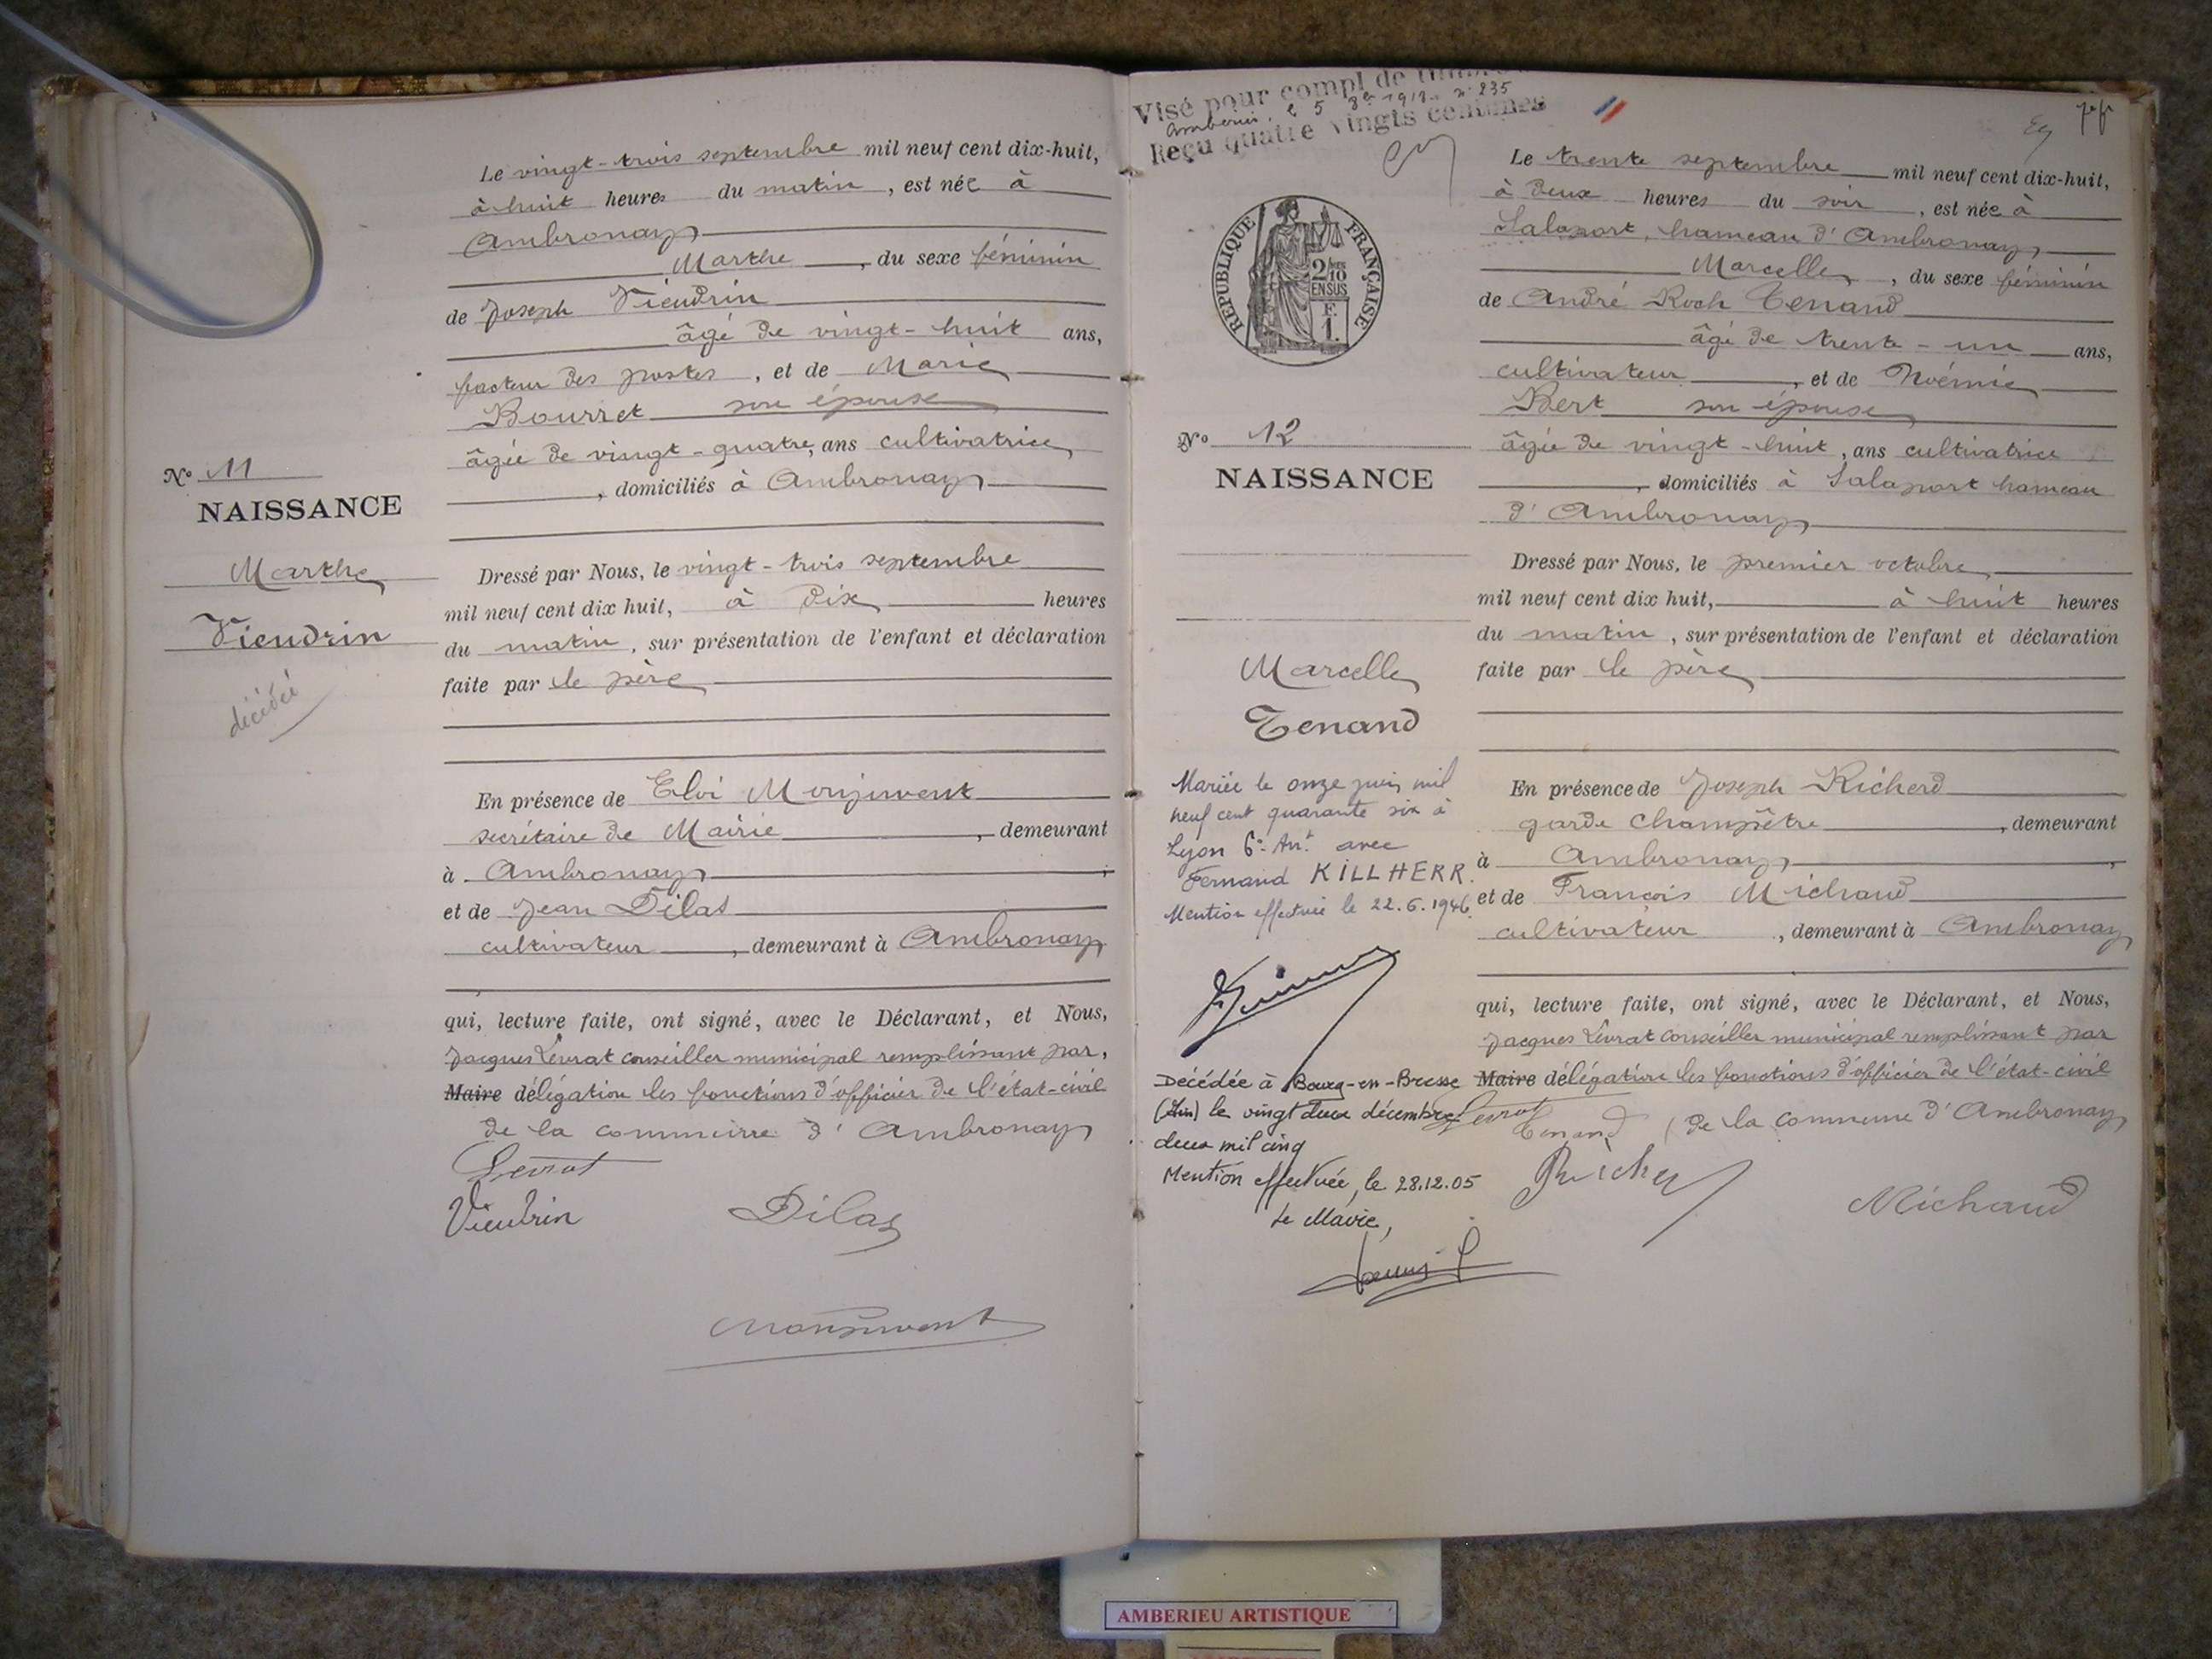 Le vingt-trois septembre mil neuf cent dix-huit,
à huit heures du matin, est née à
Ambronay
Marthe, du sexe féminin
de Joseph Vieudrin
âgé de vingt-huit ans,
facteur des postes, et de Marie
Bourret son épouse
âgée de vingt-quatre, ans cultivatrice
, domiciliés à Ambronay
No 11
NAISSANCE
Marthe
Vieudrin
décédée
Dressé par Nous, le vingt-trois septembre
mil neuf cent dix huit, à dix heures
du matin, sur présentation de l'enfant et déclaration
faite par le père
En présence de Eloi Monjuvent
secrétaire de Mairie, demeurant
à Ambronay;
et de Jean Dilas
cultivateur, demeurant à Ambronay
qui, lecture faite, ont signé, avec le Déclarant, et Nous,
Jacques Levrat conseiller municipal remplissant par,
Maire délégation les fonctions d'officier de l'état-civil
de la commune d'Ambronay
Levrat
Vieudrin Dilas
Monjuvent
Visé pour compl de timbre
Ambérieu, le 5 8re 1918 No 235
Reçu quatre vingts centimes
RÉPUBLIQUE FRANÇAISE
2/10
EN SUS
F.
1.
No 12
NAISSANCE
Marcelle
Tenand
Mariée le onze juin mil
neuf cent quarante six à
Lyon 6e Art avec
Fernand KILLHERR.
Mention effectuée le 22.6.1946
Décédée à Bourg-en-Bresse
(Ain) le vingt deux décembre
deux mil cinq
Mention effectuée, le 28.12.05
Le Maire,
Le trente septembre mil neuf cent dix-huit,
à deux heures du soir, est née à
Salaport, hameau d'Ambronay
Marcelle, du sexe féminin
de André Roch Tenand
âgé de trente-un ans,
cultivateur, et de Noémie
Bert son épouse
âgée de vingt-huit, ans cultivatrice
, domiciliés à Salaport hameau
d'Ambronay
Dressé par Nous, le premier octobre
mil neuf cent dix huit, à huit heures
du matin, sur présentation de l'enfant et déclaration
faite par le père
En présence de Joseph Richerd
garde champêtre, demeurant
à Ambronay,
et de François Michaud
cultivateur, demeurant à Ambronay
qui, lecture faite, ont signé, avec le Déclarant, et Nous,
Jacques Levrat conseiller municipal remplissant par
Maire délégation les fonctions d'officier de l'état-civil
Levrat Tenand (de la commune d'Ambronay
Richerd
Michaud
AMBERIEU ARTISTIQUE